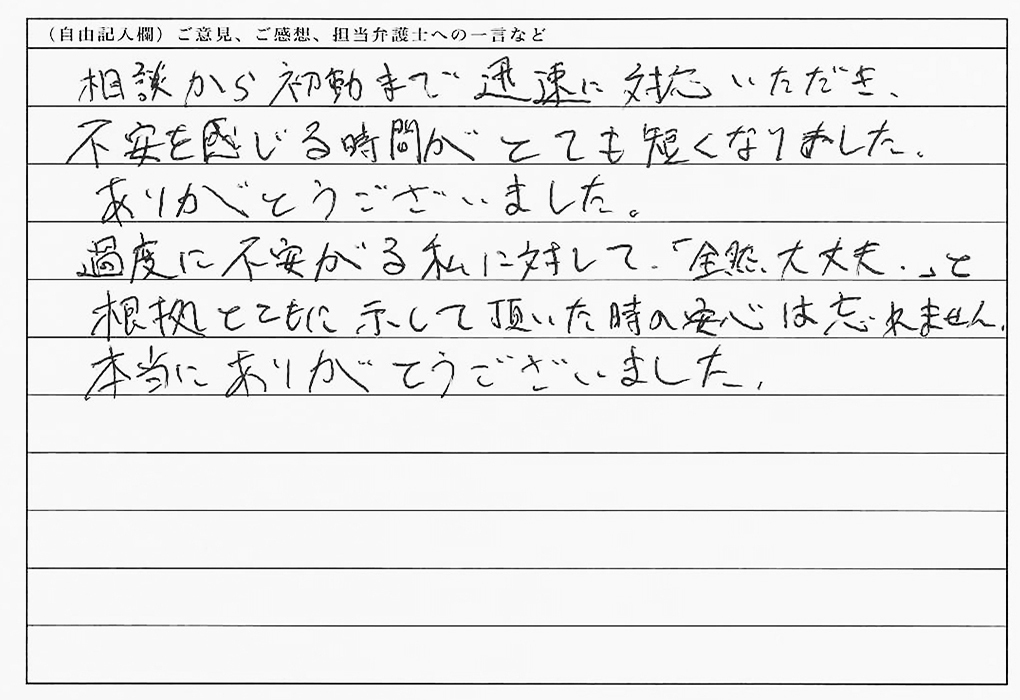 （自由記入欄）ご意見、ご感想、担当弁護士への一言など
相談から初動まで迅速に対応いただき、
不安を感じる時間がとても短くなりました。
ありがとうございました。
過度に不安がる私に対して、「全然、大丈夫。」と
根拠とともに示して頂いた時の安心は忘れません。
本当にありがとうございました。